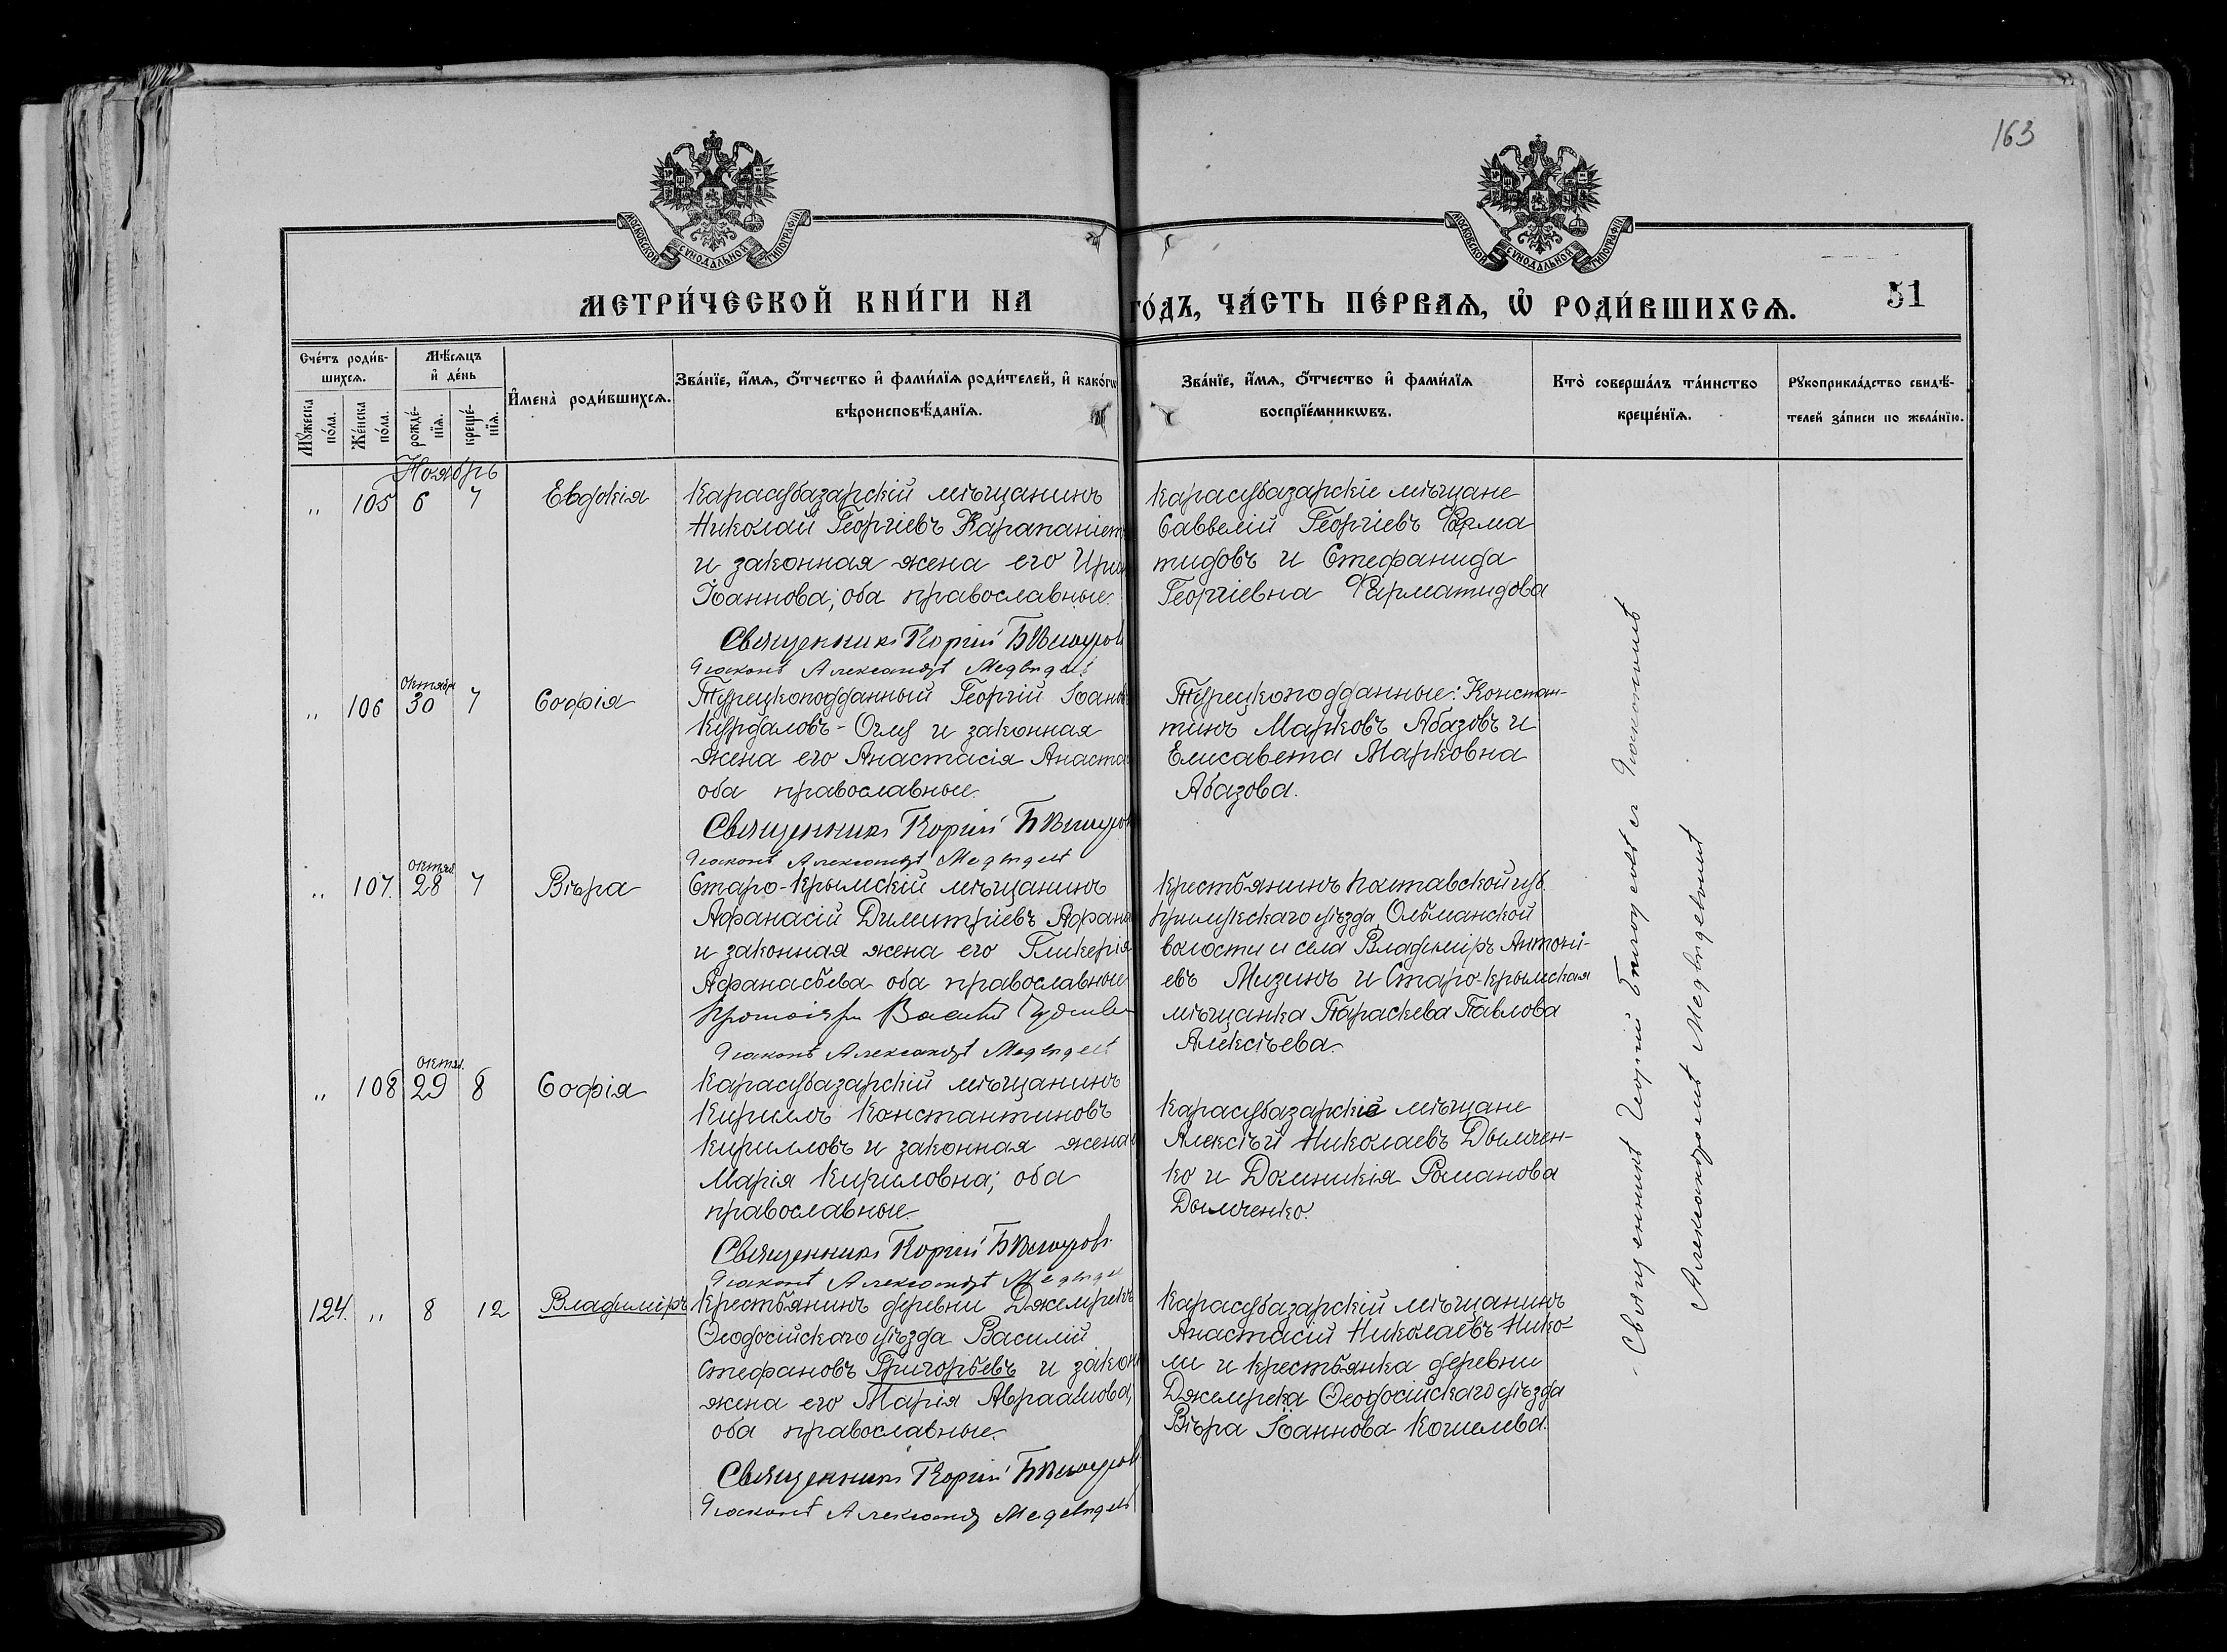 163
МОСКОВСКОЙ СѴНОДАЛЬНОЙ ТИПОГРАФІИ
МОСКОВСКОЙ СѴНОДАЛЬНОЙ ТИПОГРАФІИ
МЕТРИ́ЧЕСКОЙ КНИ́ГИ НА
ГО́ДЪ, ЧА́СТЬ ПЕ́РВАѦ, Ѡ҆ РОДИ́ВШИХСѦ.
51
Сче́тъ роди́в-
шихсѧ.
Мѣ́сѧцъ
и҆ де́нь
Мꙋ́жеска
по́ла.
Же́нска
по́ла.
рожде́-
нїѧ.
креще́-
нїѧ.
И҆мена̀ роди́вшихсѧ.
Зва́нїе, и҆́мѧ, ѻ҆́тчество и҆ фами́лїѧ роди́телей, и҆ како́гѡ
вѣроисповѣ́данїѧ.
Зва́нїе, и҆́мѧ, ѻ҆́тчество и҆ фами́лїѧ
воспрїе́мникѡвъ.
Кто̀ соверша́лъ та́инство
креще́нїѧ.
Рꙋкоприкла́дство свидѣ́-
телей за́писи по жела́нїю.
Ноябрь
„ 105 6 7 Евдокія
Карасубазарскій мѣщанинъ
Николай Георгіевъ
и законная жена его
Іоаннова; оба православные.
Священникъ Георгій
Діаконъ Александръ Медвѣдевъ
Карасубазарскіе мѣщане
Саввелій Георгіевъ Фарма
тидовъ и Стефанида
Георгіевна Фарматидова
октября
„ 106 30 7 Софія
Турецкоподданный Георгій
Курдаловъ-Оглу и законная
жена его Анастасія
оба православные.
Священникъ Георгій
Діаконъ Александръ Медвѣдевъ
Турецкоподданные: Констан-
тинъ Марковъ Абазовъ и
Елисавета Марковна
Абазова.
октяб.
„ 107. 28 7 Вѣра
Старо-Крымскій мѣщанинъ
Афанасій Димитріевъ
и законная жена его Гликерія
Афанасьева оба православные
Протоіерей Василій
Діаконъ Александръ Медвѣдевъ
Крестьянинъ Полтавской губ.
уѣзда Ольшанской
волости и села Владиміръ Антоні-
евъ Мизинъ и Старо-крымская
мѣщанка Параскева Павлова
Алексѣева.
октяб.
„ 108 29 8 Софія
Карасубазарскій мѣщанинъ
Кириллъ Константиновъ
Кирилловъ и законная жена
Марія Кириловна; оба
православные.
Священникъ Георгій
Діаконъ Александръ
Карасубазарскіе мѣщане
Алексѣй Николаевъ Дымчен-
ко и Доминикія Романова
Дымченко.
124. „ 8 12 Владиміръ
Крестьянинъ деревни Джемрекъ
Ѳеодосійскаго уѣзда Василій
Стефановъ Григорьевъ и
жена его Марія Авраамова,
оба православные.
Священникъ Георгій
Діаконъ Александръ Медвѣдевъ
Карасубазарскій мѣщанинъ
Анастасій Николаевъ Нико-
ли и крестьянка деревни
Джемрека Ѳеодосійскаго уѣзда
Вѣра Іоаннова Кошелева.
Священникъ Георгій съ Діакономъ
Александромъ Медвѣдевымъ